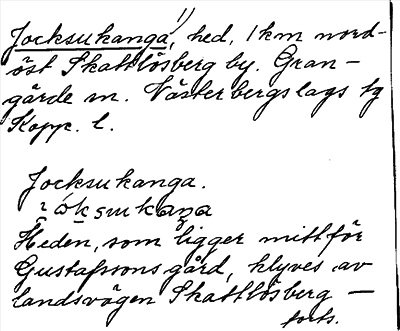 Jocksukanga, hed, 1 km nord-
öst Skattlösberg by. Gran-
gärde sn. Västerbergslags tg
Kopp. l.
Jocksukanga.
Heden, som ligger mitt för
Gustafssons gård, klyves av
landsvägen Skattlösberg —
forts.